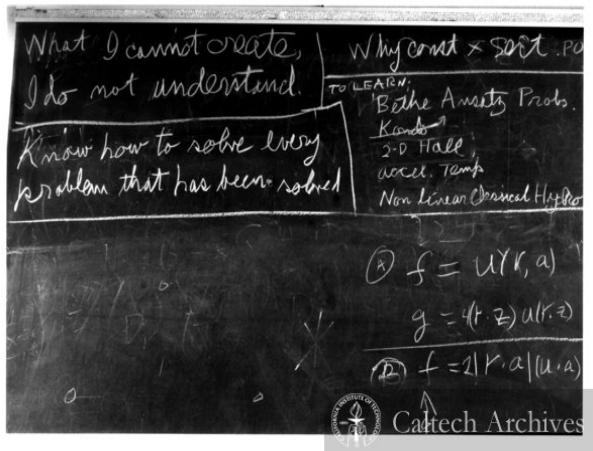 What I cannot create,
I do not understand.
Know how to solve every
problem that has been solved
Why const × sort . PO
TO LEARN:
Bethe Ansatz Probs.
Kondo
2-D Hall
accel. Temp
Non Linear Classical Hydro
Ⓐ f = u(r, a)
g = 4(r·z) u(r,z)
Ⓑ f = 2|r·a|(u·a)
CALIFORNIA INSTITUTE OF TECHNOLOGY
Caltech Archives